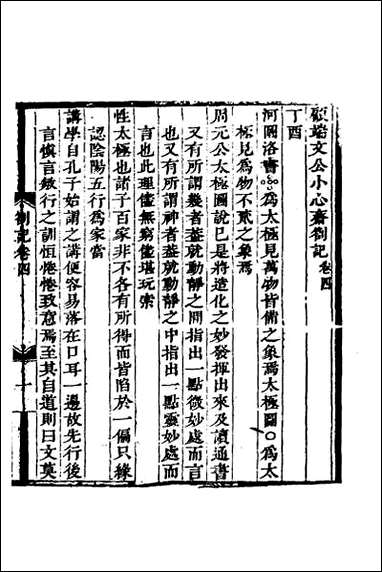 顧端文公小心齋劄記 卷四
丁酉
河圖洛書為太極見萬物皆備之象焉太極圖○為太
極見為物不貳之象焉
周元公太極圖說已是將造化之妙發揮出來及讀通書
又有所謂幾者葢就動靜之間指出一點微妙處而言
也又有所謂神者葢就動靜之中指出一點靈妙處而
言也此理儘無窮儘堪玩索
性太極也諸子百家非不各有所得而皆陷於一偏只緣
認陰陽五行為家當
講學自孔子始謂之講便容易落在口耳一邊故先行後
言慎言敏行之訓恒惓惓致意焉至其自道則曰文莫
劄記卷四
一